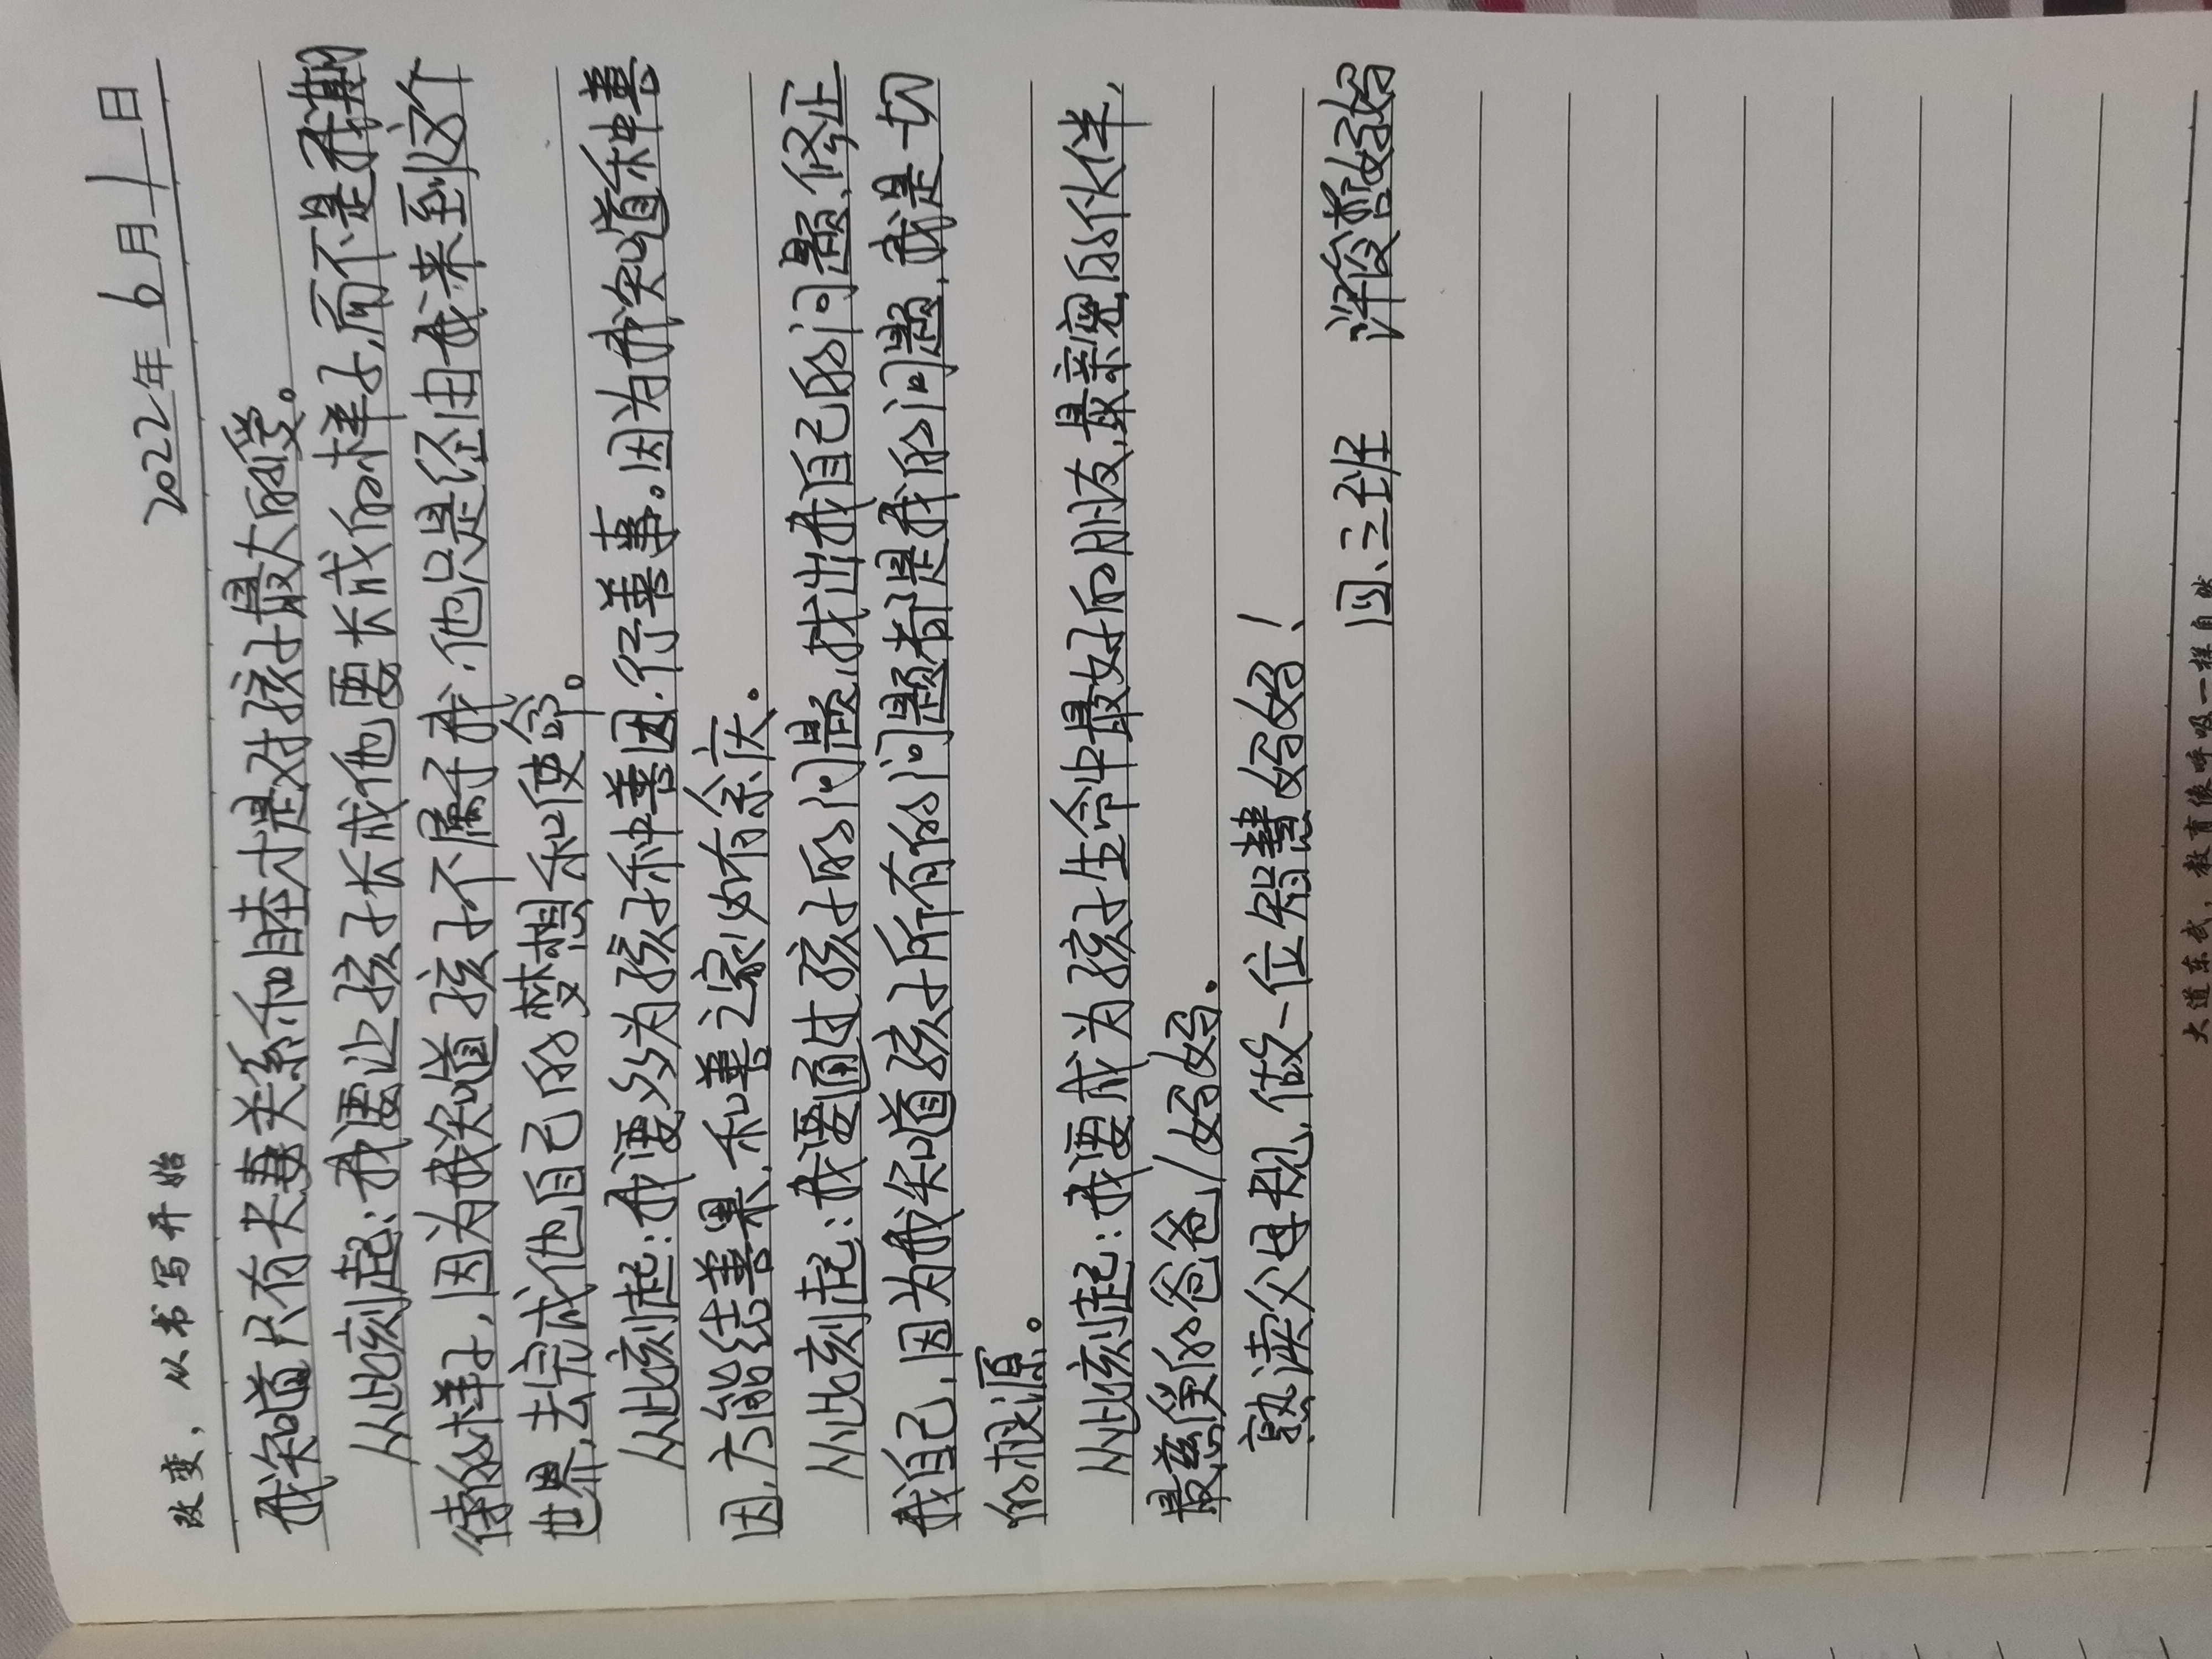 改变，从书写开始
2022年6月1日
我知道只有夫妻关系和睦才是对孩子最大的爱。
从此刻起：我要让孩子长成他要长成的样子，而不是我期
待的样子，因为我知道孩子不属于我，他只是经由我来到这个
世界，去完成他自己的梦想和使命。
从此刻起：我要多为孩子种善因，行善事。因为我知道种善
因，方能结善果，和善之家必有余庆。
从此刻起：我要通过孩子的问题，找出我自己的问题，修正
我自己，因为我知道孩子所有的问题都是我的问题，我是一切
的根源。
从此刻起：我要成为孩子生命中最好的朋友，最亲密的伙伴，
最慈爱的爸爸/妈妈。
熟读父母规，做一位智慧妈妈！
四、三班 泮俊哲妈妈
大道东武，教育像呼吸一样自然